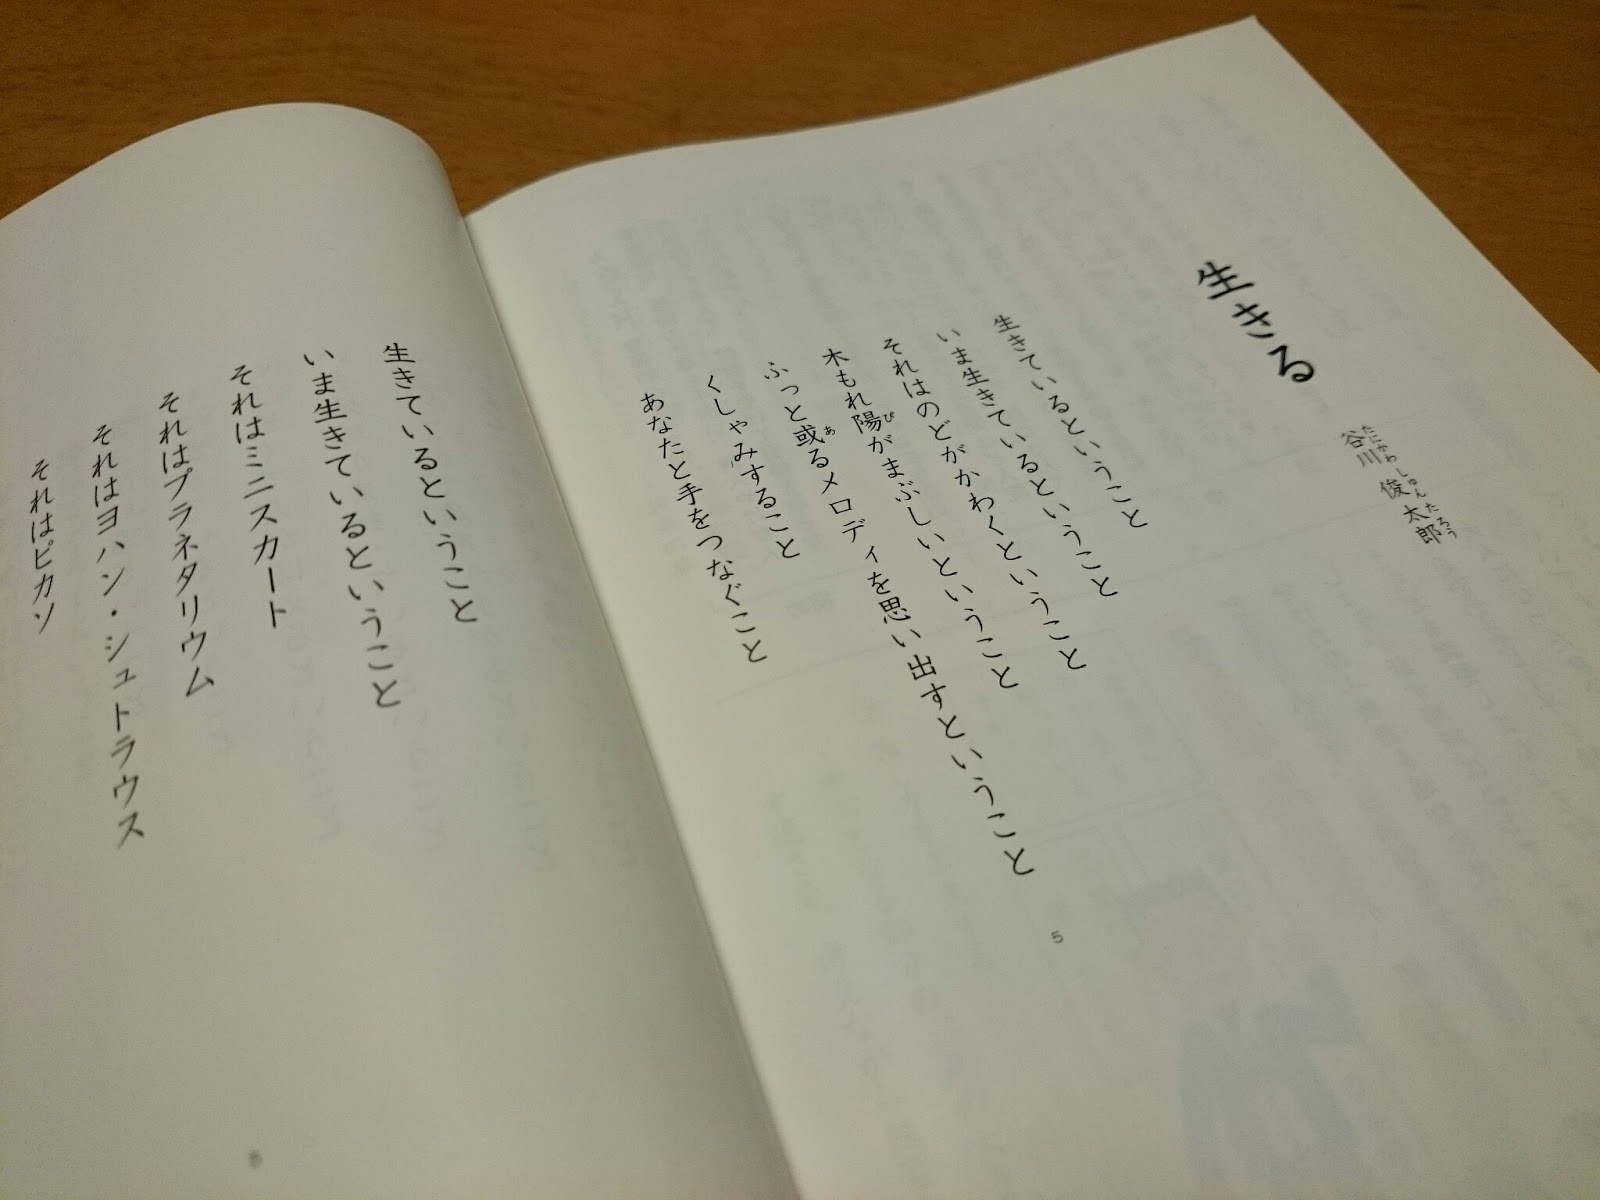 生きる
谷川 俊太郎
生きているということ
いま生きているということ
それはのどがかわくということ
木もれ陽がまぶしいということ
ふっと或るメロディを思い出すということ
くしゃみすること
あなたと手をつなぐこと
5
生きているということ
いま生きているということ
それはミニスカート
それはプラネタリウム
それはヨハン・シュトラウス
それはピカソ